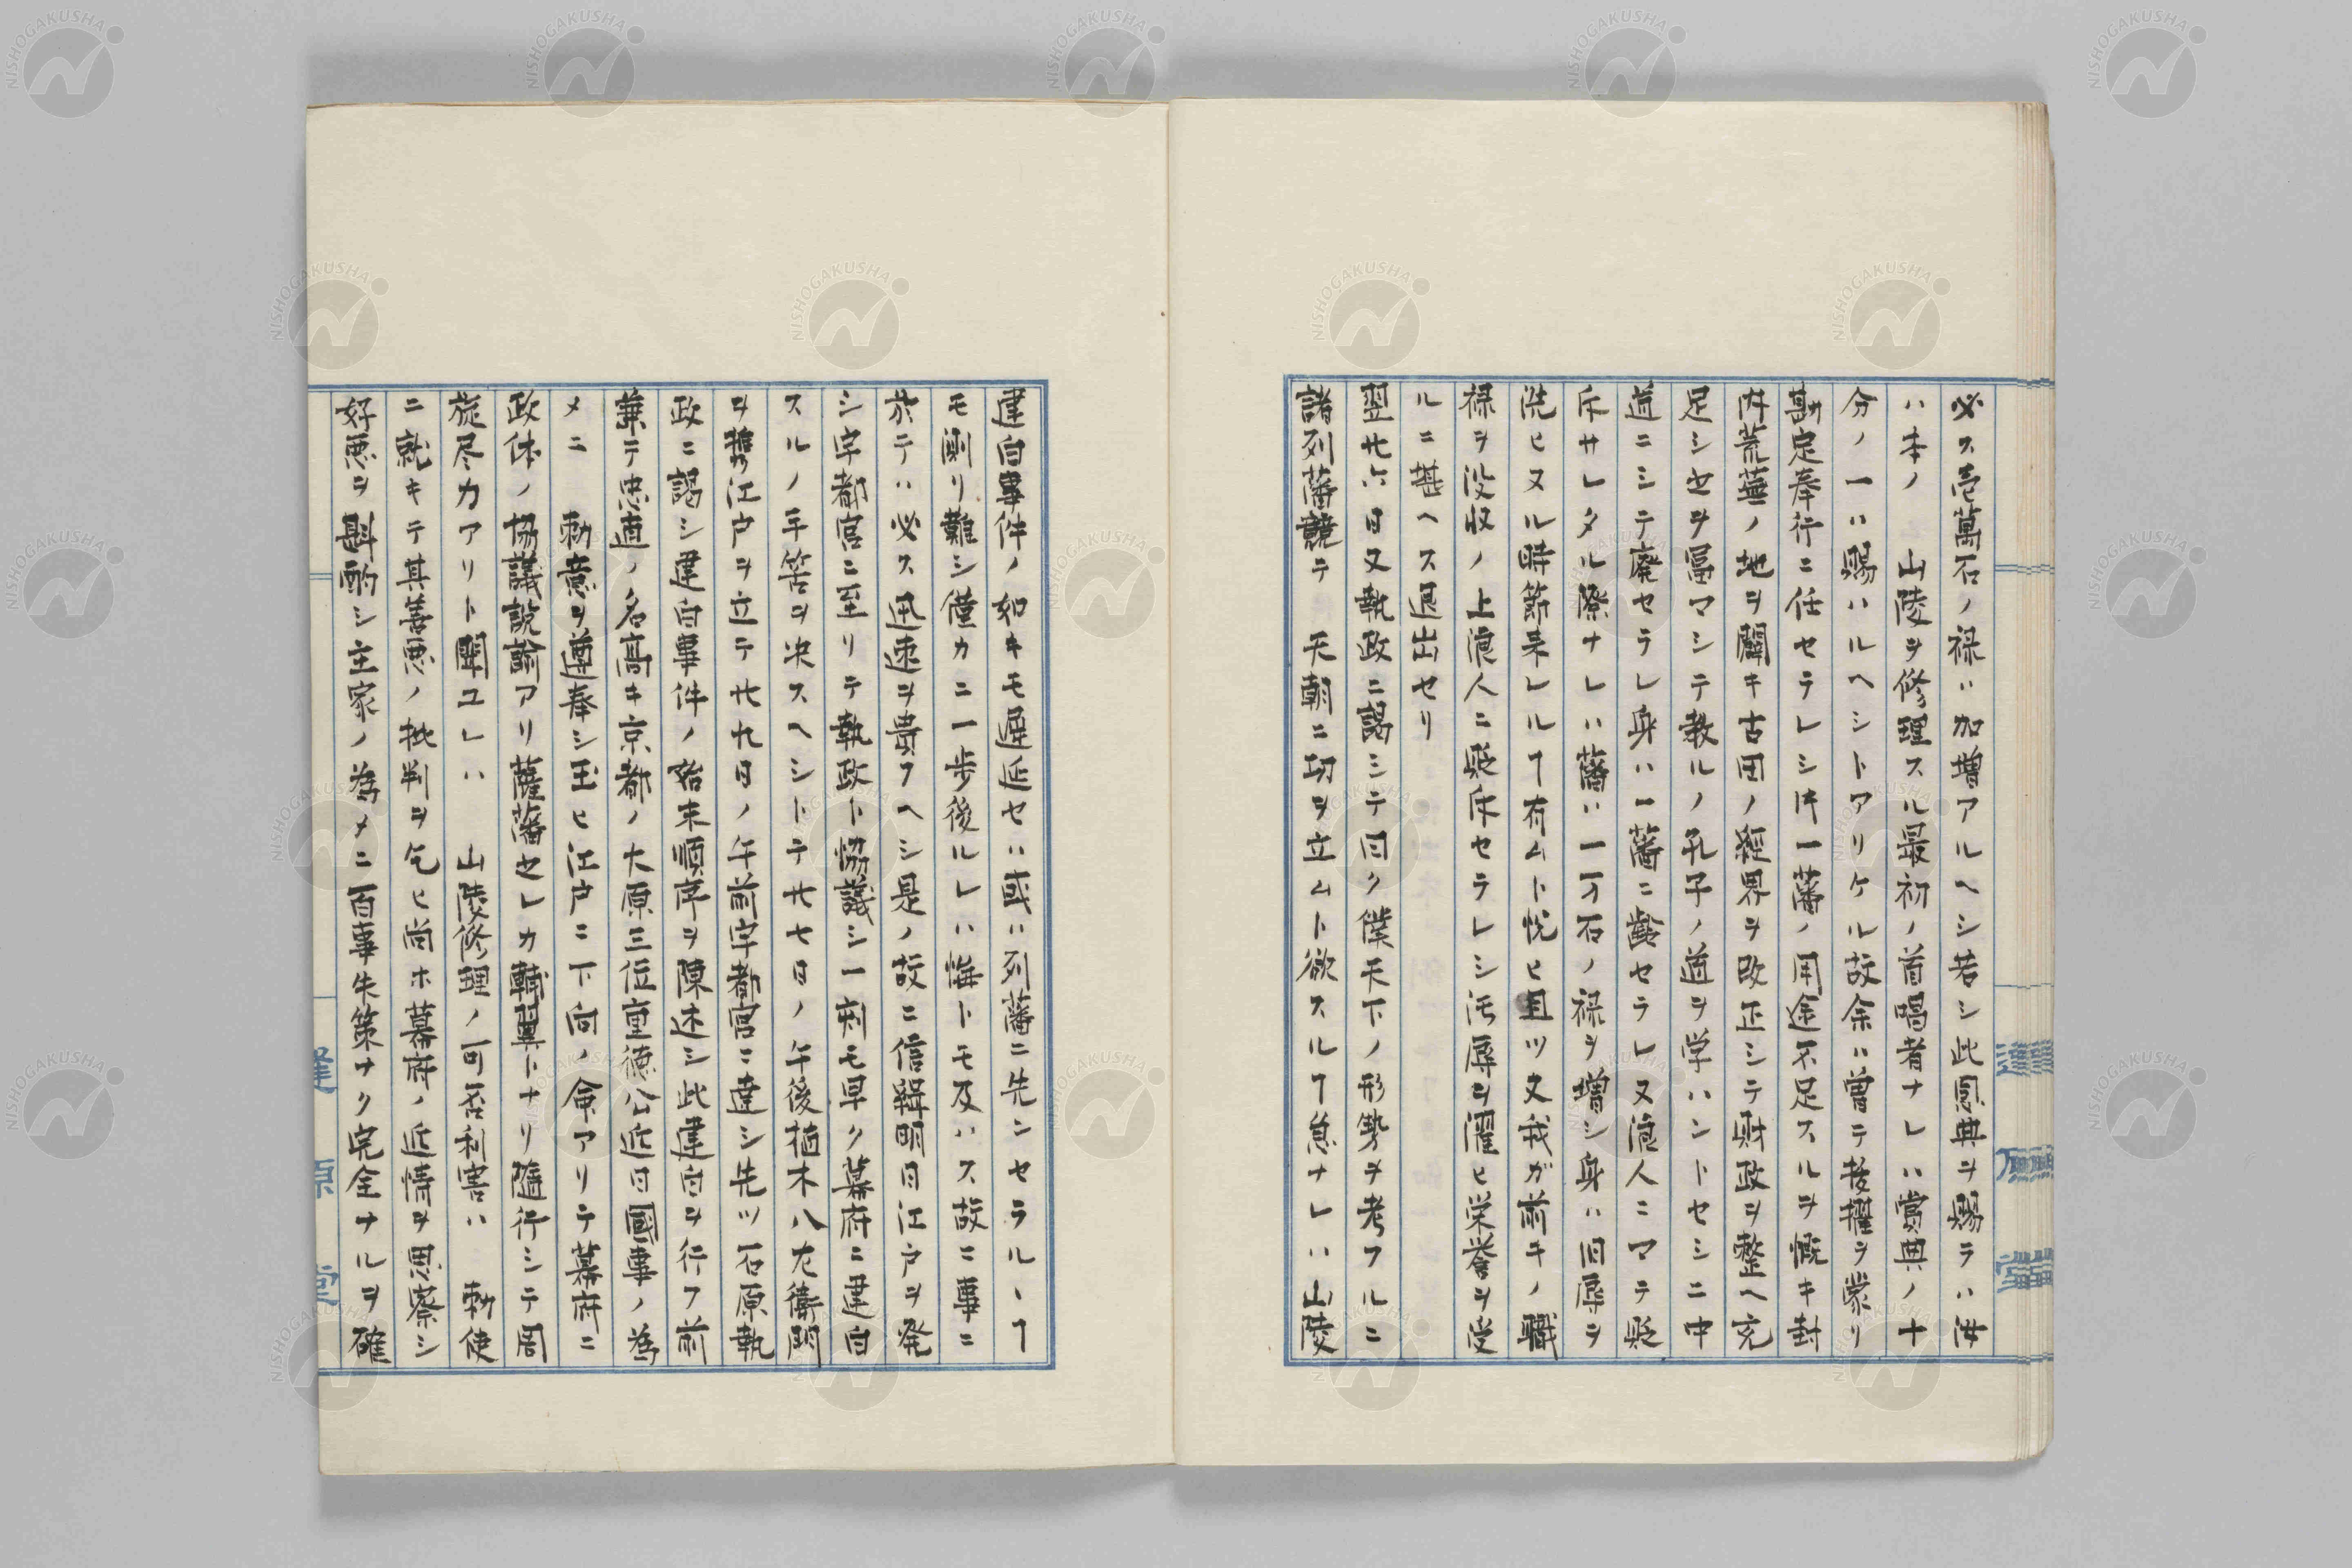 必ス壱萬石ノ禄ハ加増アルヘシ若シ此恩典ヲ賜ラハ汝
ハ本ノ　山陵ヲ修理スル最初ノ首唱者ナレハ賞典ノ十
分ノ一ハ賜ハルヘシトアリケル故余ハ曽テ抜擢ヲ蒙リ
勘定奉行ニ任セラレシ片一藩ノ用途不足スルヲ慨キ封
内荒蕪ノ地ヲ闢キ古田ノ経界ヲ改正シテ財政ヲ整ヘ充
足シ世ヲ冨マシテ教ルノ孔子ノ道ヲ学ハントセシニ中
道ニシテ廃セラレ身ハ一藩ニ齢セラレ又浪人ニマテ貶
斥サレタル際ナレハ藩ハ一万石ノ禄ヲ増シ身ハ旧辱ヲ
洗ヒヌル時節来レルヿ有ムト悦ヒ且ツ丈我ガ前キノ職
禄ヲ没収ノ上浪人ニ貶斥セラレシ汚辱ヲ濯ヒ栄誉ヲ受
ルニ堪ヘス退出セリ
翌廿六日又執政ニ謁シテ曰ク僕天下ノ形勢ヲ考フルニ
諸列藩競テ　天朝ニ功ヲ立ムト欲スルヿ急ナレハ山陵
建白事件ノ如キモ遅延セハ或ハ列藩ニ先ンセラルヽヿ
モ測リ難シ僅カニ一歩後ルレハ悔トモ及ハス故ニ事ニ
於テハ必ス迅速ヲ貴フヘシ是ノ故ニ信緝明日江戸ヲ発
シ宇都宮ニ至リテ執政ト協議シ一刻モ早ク幕府ニ建白
スルノ手筈ヲ决スヘシトテ廿七日ノ午後植木八左衛門
ヲ携江戸ヲ立テ廿九日ノ午前宇都宮ニ達シ先ツ石原執
政ニ謁シ建白事件ノ始末順序ヲ陳述シ此建白ヲ行フ前
兼テ忠直ノ名高キ京都ノ大原三位重徳公近日國事ノ為
メニ　勅意ヲ遵奉シ玉ヒ江戸ニ下向ノ命アリテ幕府ニ
政体ノ協議説諭アリ薩藩セレカ輔翼トナリ随行シテ周
旋尽力アリト聞ユレハ　山陵修理ノ可否利害ハ　勅使
ニ就キテ其善悪ノ批判ヲ乞ヒ尚ホ幕府ノ近情ヲ思察シ
好悪ヲ斟酌シ主家ノ為メニ百事失策ナク完全ナルヲ確